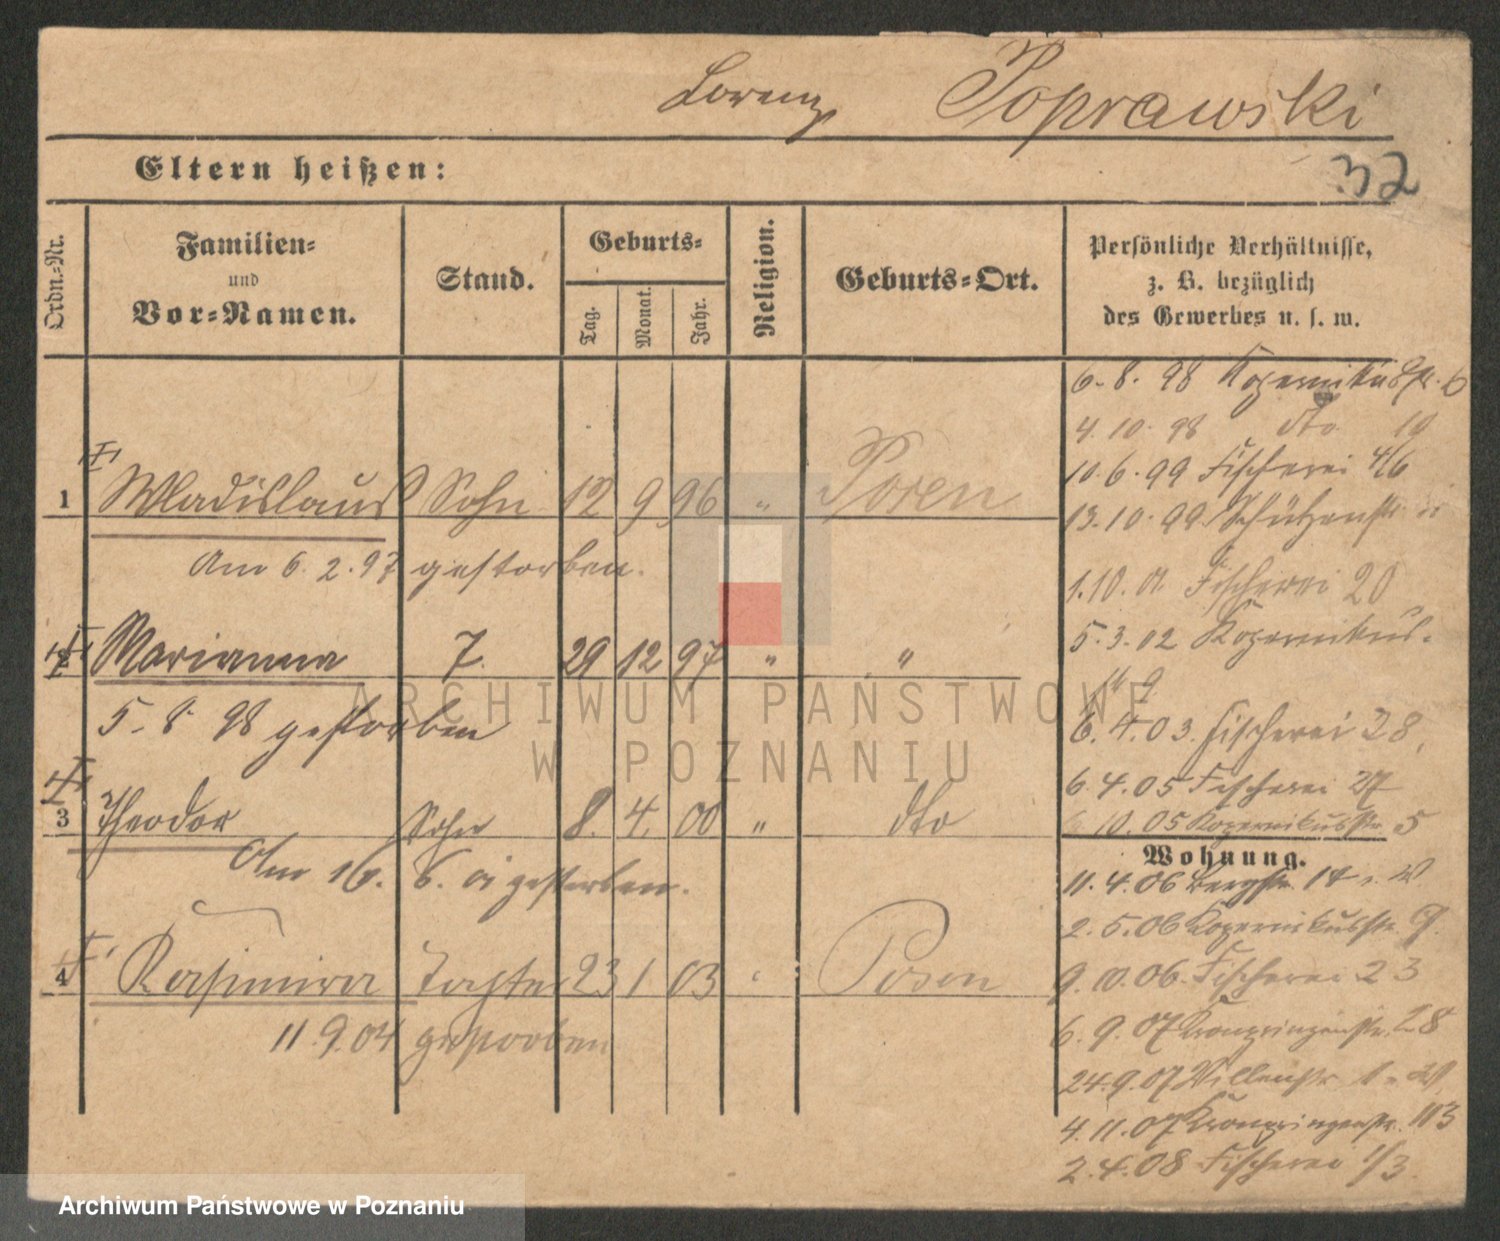 Lorenz Poprawski
32
Eltern heißen:
Ordn.-Nr.
Familien-
und
Vor-Namen.
Stand.
Geburts-
Tag.
Monat.
Jahr.
Religion.
Geburts-Ort.
Persönliche Verhältnisse,
z. B. bezüglich
des Gewerbes u. s. w.
1 Wladislaus Sohn 12 9 96 " Posen
Am 6.2.97 gestorben.
2 Marianna T. 29 12 97 " "
5. 8. 98 gestorben
3 Theodor Sohn 8. 4. 00 " dto
Am 16. 6. 01 gestorben.
4 Kasimira Tochter 23 1 03 " Posen
11.9.04 gestorben
6. 8. 98 Kopernikusstr. 6
4. 10. 98 dto 10
10. 6. 99 Fischerei 4/6
13. 10. 99 Schützenstr.
1. 10. 01. Fischerei 20
5. 3. 02 Kopernikus-
str 9
6. 4. 03. Fischerei 28,
6. 4. 05 Fischerei 27
10. 05 Kopernikusstr 5
Wohnung.
11. 4. 06 Bergstr. 14
2. 5. 06 Kopernikusstr. 9.
9. 10. 06. Fischerei 23
6. 9. 07 Kronprinzenstr. 28
24. 9. 07 Villenstr
4. 11. 07 Kronprinzenstr. 113
2. 4. 08 Fischerei 1/3.
ARCHIWUM PAŃSTWOWE
W POZNANIU
Archiwum Państwowe w Poznaniu